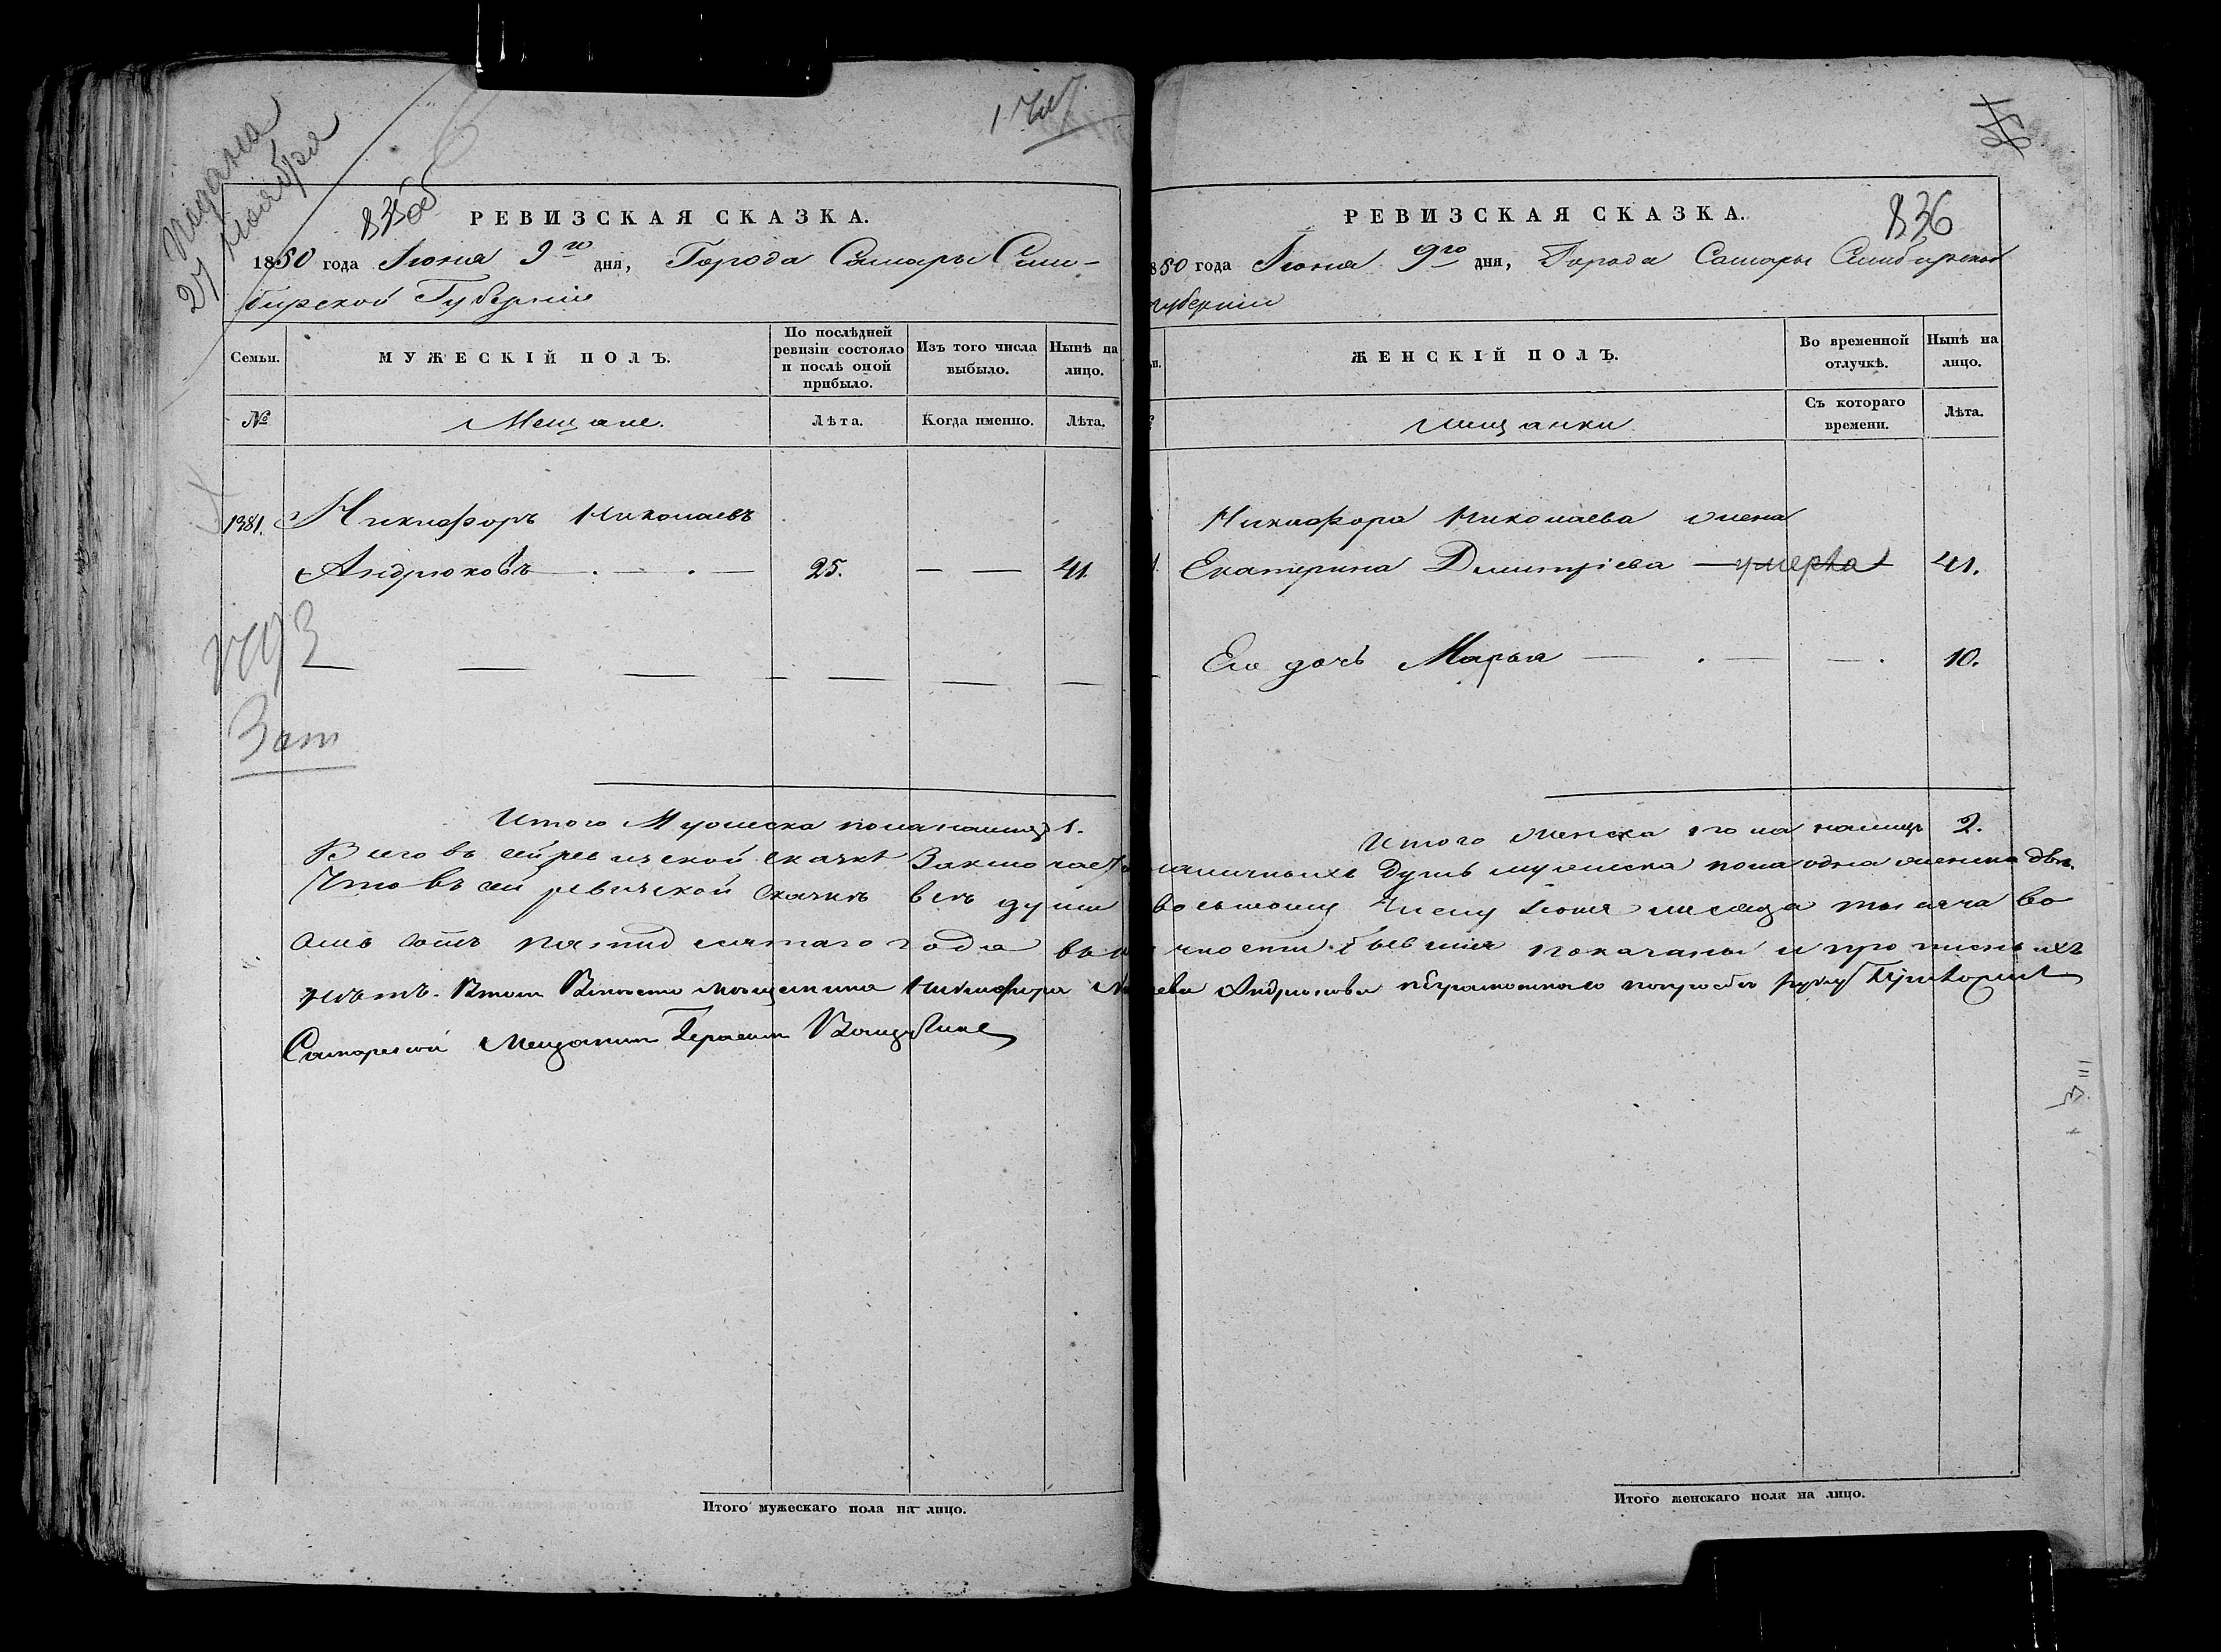 Подана
27 Ноября
835 об
РЕВИЗСКАЯ СКАЗКА.
1850 года Іюня 9го дня, Города Самары Сим-
бирской Губерніи
Семьи.
МУЖЕСКІЙ ПОЛЪ.
По послѣдней ревизіи состояло и послѣ оной прибыло.
Изъ того числа выбыло.
Нынѣ на лицо.
№
Мещане.
Лѣта.
Когда именно.
Лѣта.
1381.
Никифоръ Николаевъ
Андрюковъ — . — . — 25. — — 41.
Зап
Итого Мужеска пола налицо 1.
Всего въ сей ревизской сказкѣ Заключает
Что въ сей ревизской Сказкѣ всѣ души
омь сотъ пятидесятаго года въ
нѣтъ. Въ томъ Вместо мещанина Никифора
Самарской Мещанин Герасим
Итого мужескаго пола на лицо.
836
РЕВИЗСКАЯ СКАЗКА.
850 года Іюня 9го дня, Города Самары Симбирской
губерніи
ЖЕНСКІЙ ПОЛЪ.
Во временной отлучкѣ.
Нынѣ на лицо.
мещанки
Съ котораго времени.
Лѣта.
Никифора Николаева жена
Екатерина Дмитріева — умерла 41.
Его дочь Марья — . — — . 10.
Итого женска пола налицо 2.
наличныхъ Душъ мужеска пола одна женска двѣ.
восьмому Числу Іюня месяца тысяча во
чности бывшія показаны и прописныхъ
ева Андрюкова неграмотнаго по просьбѣ руку Приложил
Итого женскаго пола на лицо.